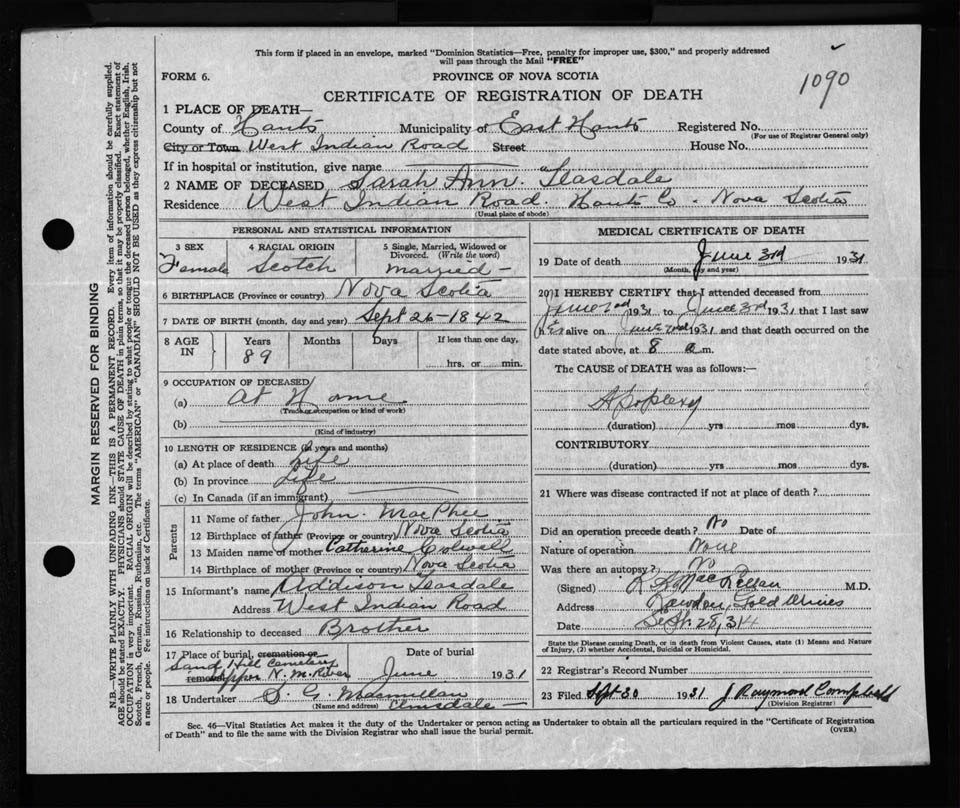 This form if placed in an envelope, marked "Dominion Statistics—Free, penalty for improper use, $300," and properly addressed
will pass through the Mail "FREE"
1090
FORM 6.
PROVINCE OF NOVA SCOTIA
CERTIFICATE OF REGISTRATION OF DEATH
1 PLACE OF DEATH—
County of Hants Municipality of East Hants Registered No.
(For use of Registrar General only)
City or Town West Indian Road Street House No.
If in hospital or institution, give name
2 NAME OF DECEASED Sarah Ann. Teasdale
Residence West Indian Road. Hants Co. Nova Scotia
(Usual place of abode)
PERSONAL AND STATISTICAL INFORMATION
3 SEX
Female
4 RACIAL ORIGIN
Scotch
5 Single, Married, Widowed or
Divorced. (Write the word)
Married—
6 BIRTHPLACE (Province or country) Nova Scotia
7 DATE OF BIRTH (month, day and year) Sept 26-1842
8 AGE
IN
Years
89
Months
Days
If less than one day,
hrs. or min.
9 OCCUPATION OF DECEASED
(a) At Home
(Trade, occupation or kind of work)
(b)
(Kind of industry)
10 LENGTH OF RESIDENCE (in years and months)
(a) At place of death Life
(b) In province Life
(c) In Canada (if an immigrant)
Parents
11 Name of father John. MacPhee
12 Birthplace of father (Province or country) Nova Scotia
13 Maiden name of mother Catherine Colwell
14 Birthplace of mother (Province or country) Nova Scotia
15 Informant's name Addison Teasdale
Address West Indian Road
16 Relationship to deceased Brother
17 Place of burial, cremation or
Sand Hill Cemetery
removal Upper N. M. River
Date of burial
June 1931
18 Undertaker S. G. Macmillan
(Name and address) Elmsdale—
MEDICAL CERTIFICATE OF DEATH
19 Date of death June 3rd 1931
(Month, day and year)
20 I HEREBY CERTIFY that I attended deceased from
June 2nd 1931 to June 3rd 1931 that I last saw
her alive on June 2nd 1931 and that death occurred on the
date stated above, at 8 a.m.
The CAUSE of DEATH was as follows:—
Apoplexy
(duration) yrs mos dys.
CONTRIBUTORY
(duration) yrs mos dys.
21 Where was disease contracted if not at place of death?
Did an operation precede death? No Date of
Nature of operation None
Was there an autopsy? No
(Signed) MacLellan M.D.
Address Rawdon Gold Mines
Date Sept. 28, 31
State the Disease causing Death, or in death from Violent Causes, state (1) Means and Nature
of Injury, (2) whether Accidental, Suicidal or Homicidal.
22 Registrar's Record Number
23 Filed Sept 30 1931 J Raymond Campbell
(Division Registrar)
Sec. 46—Vital Statistics Act makes it the duty of the Undertaker or person acting as Undertaker to obtain all the particulars required in the "Certificate of Registration
of Death" and to file the same with the Division Registrar who shall issue the burial permit.
(OVER)
MARGIN RESERVED FOR BINDING
N.B.—WRITE PLAINLY WITH UNFADING INK—THIS IS A PERMANENT RECORD. Every item of information should be carefully supplied.
AGE should be stated EXACTLY. PHYSICIANS should STATE CAUSE OF DEATH in plain terms, so that it may be properly classified. Exact statement of
OCCUPATION is very important. RACIAL ORIGIN will be described by stating to what people or tongue the deceased person belonged, whether English, Irish,
Scotch, French, German, Russian, Ruthenian, etc. The terms "AMERICAN" or "CANADIAN" SHOULD NOT BE USED as they express citizenship but not
a race or people. Fee instructions on back of Certificate.